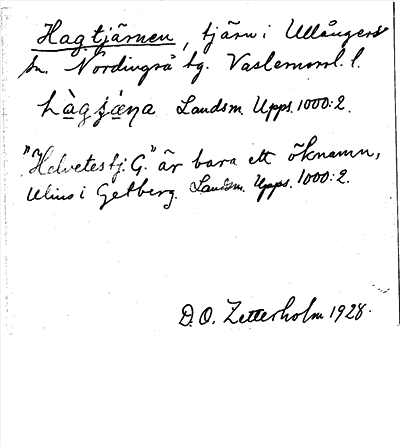 Hagtjärnen, tjärn i Ullångers
sn. Nordingrå tg. Västernorrl. l.
hàgʃæ̀ṇa Landsm. Upps. 1000:2.
"Helvetestj. G." är bara ett öknamn,
Ulins i Getberg. Landsm. Upps. 1000:2.
D. O. Zetterholm 1928.